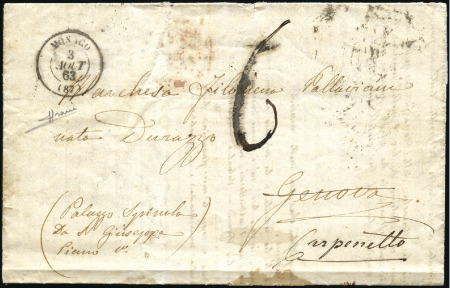 MONACO
3
AOUT
63
(87)
6
Marchesa Filomena Pallavicini
nata Durazzo
Genova
(Palazzo Spinola
Da St Giuseppe
Piano 1o)
Carpenetto